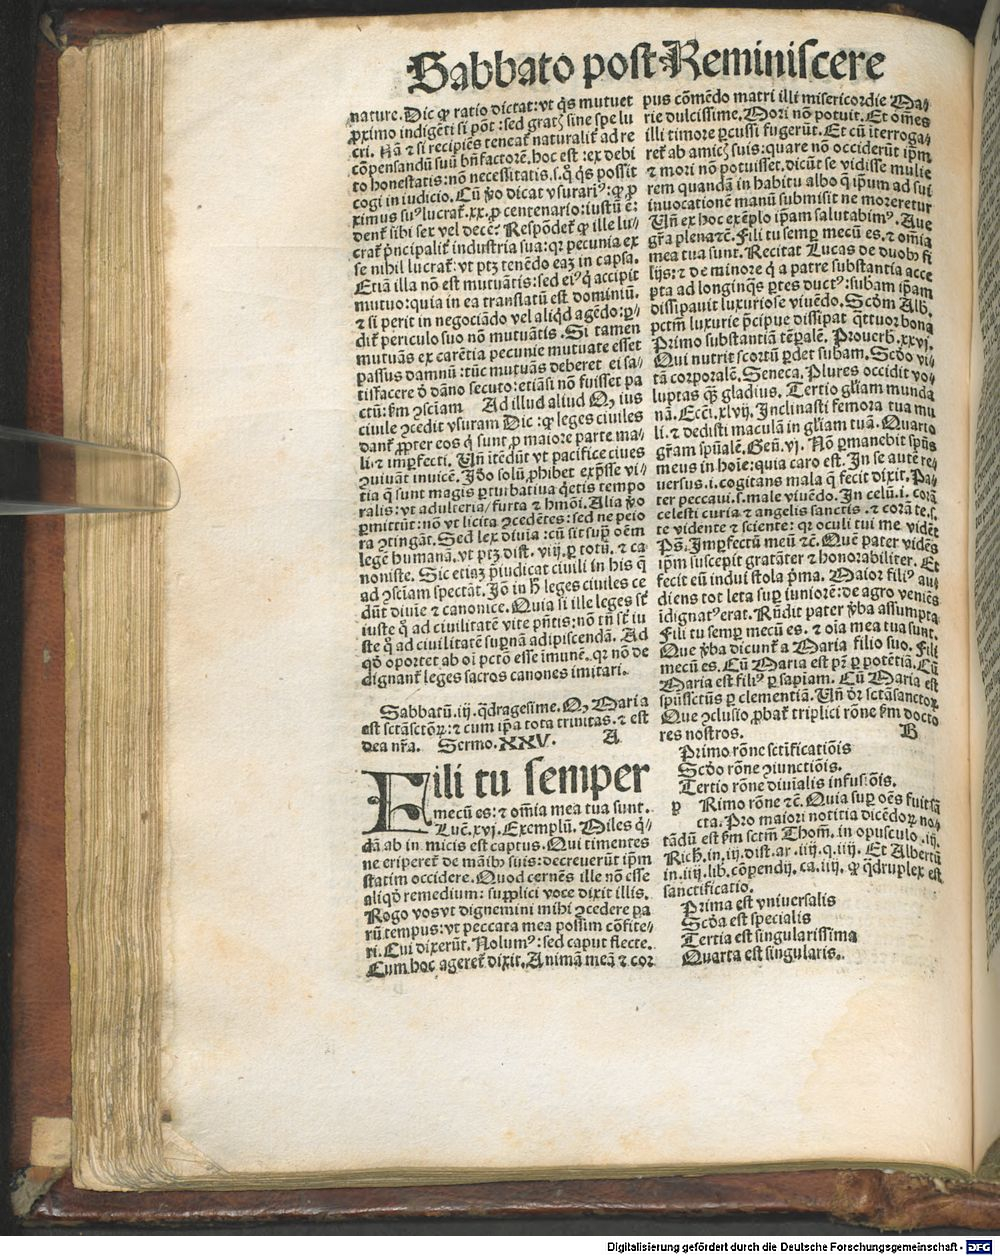 Sabbato post Reminiscere
nature. Dic ꝙ ratio dictat: vt q̇s mutuet
ꝓximo indigēti si pōt: sed gratꝭ sine spe lu
cri. Nā ⁊ si recipiēs teneat̄ naturalit̄ ad re
cōpensandū suū bn̄factorē. hoc est: ex debi
to honestatis: nō necessitatis. s. q̇ q̇s possit
cogi in iudicio. Cū ꝟo dicat vsurariꝰ: ꝙ ꝓ
ximus suꝰ lucrat̄. xx. ꝓ centenario: iustū ē:
dent̄ sibi sex vel decē? Respōdet̄ ꝙ ille lu⸗
crat̄ pͥncipalit̄ industria sua: qꝛ pecunia ex
se nihil lucrat̄: vt ptꝫ tenēdo eaꝫ in capsa.
Etiā illa nō est mutuātis: sed eiꝰ q̇ accipit
mutuo: quia in ea translatū est dominiū.
⁊ si perit in negociādo vel aliq̇d agēdo: ꝑ⸗
dit̄ periculo suo nō mutuātis. Si tamen
mutuās ex carētia pecunie mutuate esset
passus damnū: tūc mutuās deberet ei sa⸗
tisfacere ꝺ̄ dāno secuto: etiāsi nō fuisset pa
ctū: ẜm ꝯsciam Ad illud aliud Ꝙ ius
ciuile ꝯcedit vsuram Dic: ꝙ leges ciuiles
dant̄ ꝓpter eos q̇ sunt ꝓ maiore parte ma⸗
li. ⁊ imperfecti. Un̄ itēdūt vt pacifice ciues
ꝯuiuāt inuicē. Jdo solū ꝓhibet exp̄sse vi⸗
tia q̄ sunt magis ꝑturbatiua q̇etis tempo
ralis: vt adulteria/ furta ⁊ hmōi. Alia ꝟo
ꝑmittūt: nō vt licita ꝯcedētes: sed ne peio
ra ꝯtingāt. Sed lex diuīa: cū sit sup̄ oēm
legē humanā. vt ptꝫ dist. viij. ꝑ totū. ⁊ ca
noniste. Sic etiaꝫ p̄iudicat ciuili in his q̄
ad ꝯsciam spectāt. Jō in ħ leges ciuiles ce
dūt diuīe ⁊ canonice. Quia si ille leges st̄
iuste q̄ ad ciuilitatē vite pn̄tis: nō tn̄ st̄ iu
ste q̄ ad ciuilitatē supͥnā adipiscendā. Ad
qḋ oportet ab oī pctō esse imunē. qꝛ nō de
dignant̄ leges sacros canones imitari.
Sabbatū. iij. q̄dragesime. Ꝙ Maria
est sctāsctōꝝ: ⁊ cum ip̄a tota trinitas. ⁊ est
dea nr̄a. Sermo. XXV. A
Fili tu semper
mecū es: ⁊ om̄ia mea tua sunt.
Luc̄. xvj. Exemplū. Miles q̇⸗
dā ab in micis est captus. Qui timentes
ne eriperet̄ de māibꝰ suis: decreuerūt ip̄m
statim occidere. Quod cernēs ille nō esse
aliqḋ remedium: supplici voce dixit illis.
Rogo vos vt dignemini mihi ꝯcedere pa
rū tempus: vt peccata mea possim cōfite⸗
ri. Cui dixerūt. Nolumꝰ: sed caput flecte.
Cum hoc ageret̄ dixit. Animā meā ⁊ cor
pus cōmēdo matri illi misericordie Ma⸗
rie dulcissime. Mori nō potuit. Et om̄es
illi timore ꝑcussi fugerūt. Et cū iterroga⸗
ret̄ ab amicꝭ suis: quare nō occiderūt ip̄m
⁊ mori nō potuisset. dicūt se vidisse mulie
rem quandā in habitu albo q̄ ipūm ad sui
inuocationē manū submisit ne moreretur
Un̄ ex hoc exēplo ip̄am salutabimꝰ. Aue
gr̄a plena ⁊c̄. Fili tu semꝑ mecū es. ⁊ om̄ia
mea tua sunt. Recitat Lucas de duobꝰ fi
lijs: ⁊ de minore q̇ a patre substantia acce
pta ad longinq̄s ꝑtes ductꝰ: subam ip̄am
dissipauit luxuriose viuēdo. Scḋm Alb̄.
pctm̄ luxurie p̄cipue dissipat q̄ttuor bona
Primo substantiā tēꝑalē. Prouerb̄. xxvi.
Qui nutrit scortū ꝑdet subam. Scḋo vi⸗
tā corporalē. Seneca. Plures occidit vo⸗
luptas q̄ꝫ gladius. Tertio gl̄iam munda
nā. Ecci. xlvij. Jnclinasti femora tua mu
li. ⁊ dedisti maculā in gl̄iam tuā. Quarto
gr̄am spūalē. Gen̄. vj. Nō ꝑmanebit spūs
meus in hoīe: quia caro est. Jn se autē re⸗
uersus. i. cogitans mala q̄ fecit dixit. Pa⸗
ter peccaui. s. male viuēdo. Jn celū. i. corā
celesti curia ⁊ angelis sanctis. ⁊ corā te. s.
te vidente ⁊ sciente: qꝛ oculi tui me vidēt
Ps̄. Jmꝑfectū meū ⁊c̄. Quē pater vidēs
ip̄m suscepit gratāter ⁊ honorabiliter. Et
fecit eū indui stola pͥma. Maior filiꝰ au⸗
diens tot leta suꝑ iuniorē: de agro veniēs
īdignatꝰ erat. Rn̄dit pater ꝟba assumpta
Fili tu semꝑ mecū es. ⁊ oīa mea tua sunt.
Que ꝟba dicunt̄ a Maria filio suo. Fili
mecū es. Cū Maria est pr̄ ꝑ potētiā. Cū
Maria est filiꝰ ꝑ sapiam. Cū Maria est
spūssctūs ꝑ clementiā. Un̄ ꝺr̄ sctāsanctoꝝ.
Que ꝯclusio ꝓbat̄ triplici rōne ẜm docto
res nostros. B
Primo rōne sctificatiōis
Scḋo rōne ꝯiunctiōis.
Tertio rōne diuialis infusiōis.
p Rimo rōne ⁊c̄. Quia suꝑ oēs fuit sā
cta. Pro maiori notitia dicēdoꝝ no⸗
tādū est ẜm sctm̄ Thom̄. in opusculo. ij.
Rich̄. in. iij. dist. ar. iij. q. iij. Et Albertū
in. iiij. lib. cōpendij. ca. iij. ꝙ q̄druplex est
sanctificatio.
Prima est vniuersalis
Scḋa est specialis
Tertia est singularissima
Quarta est singularis.
Digitalisierung gefördert durch die Deutsche Forschungsgemeinschaft - DFG